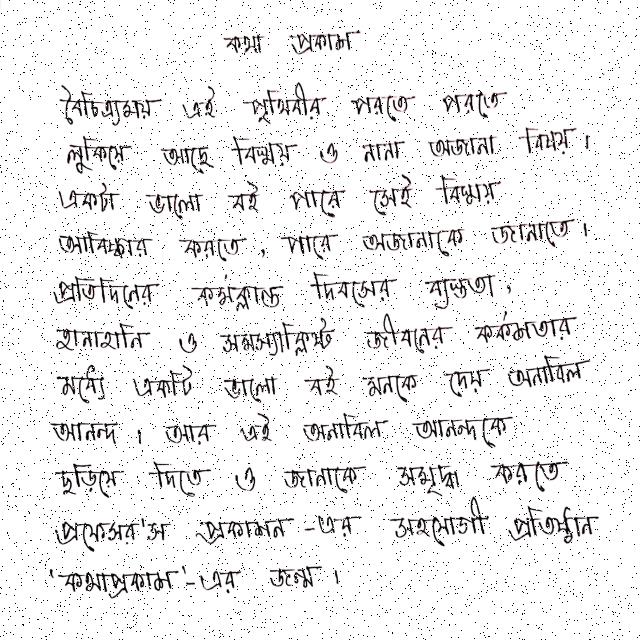 কথা প্রকাশ
বৈচিত্র্যময় এই পৃথিবীর পরতে পরতে
লুকিয়ে আছে বিস্ময় ও নানা অজানা বিষয়।
একটা ভালো বই পারে সেই বিস্ময়
আবিষ্কার করতে, পারে অজানাকে জানাতে।
প্রতিদিনের কর্মক্লান্ত দিবসের ব্যস্ততা,
হানাহানি ও সমস্যাক্লিষ্ট জীবনের কর্কশতার
মধ্যে একটি ভালো বই মনকে দেয় অনাবিল
আনন্দ। আর এই অনাবিল আনন্দকে
ছড়িয়ে দিতে ও জানাকে সমৃদ্ধ করতে
প্রফেসর'স প্রকাশন -এর সহযোগী প্রতিষ্ঠান
'কথাপ্রকাশ'-এর জন্ম।